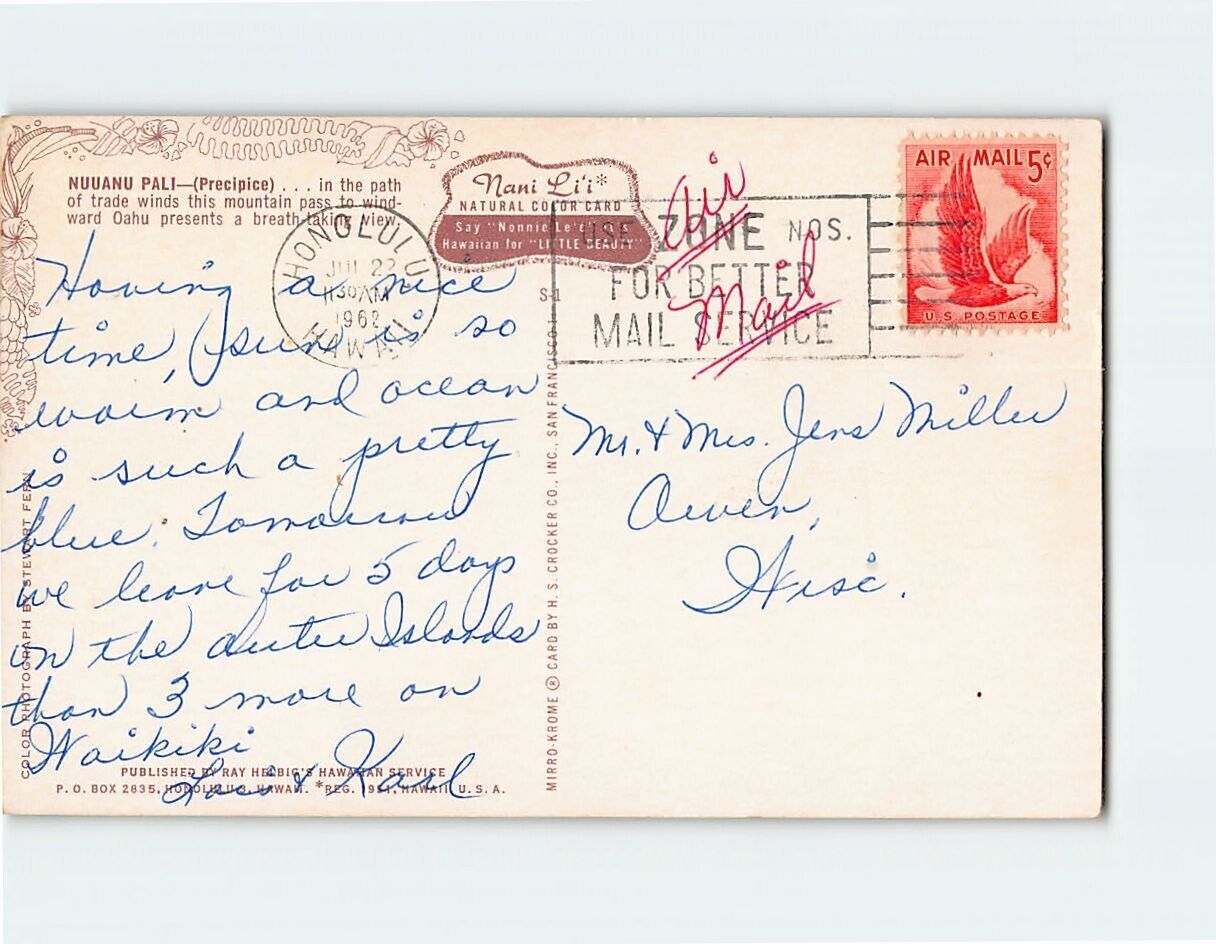 NUUANU PALI—(Precipice) . . . in the path
of trade winds this mountain pass to wind-
ward Oahu presents a breath-taking view.
Nani Li'i*
NATURAL COLOR CARD
Say "Nonnie Le'e"
Hawaiian for "LITTLE BEAUTY"
HONOLULU
JUL 22
1130 AM
1962
HAWAII
USE ZONE NOS.
FOR BETTER
MAIL SERVICE
Air
Mail
AIR MAIL 5¢
U.S. POSTAGE
S-1
Having a nice
time, sun is so
warm and ocean
is such a pretty
blue. Tomorrow
we leave for 5 days
on the outer Islands
than 3 more on
Waikiki
Lois & Karl
Mr. & Mrs. Jens Miller
Owen,
Wisc.
COLOR PHOTOGRAPH BY STEWART FERN
MIRRO-KROME ® CARD BY H. S. CROCKER CO., INC., SAN FRANCISCO
PUBLISHED BY RAY HELBIG'S HAWAIIAN SERVICE
P. O. BOX 2835, HONOLULU, HAWAII. *REG. 1951, HAWAII U. S. A.